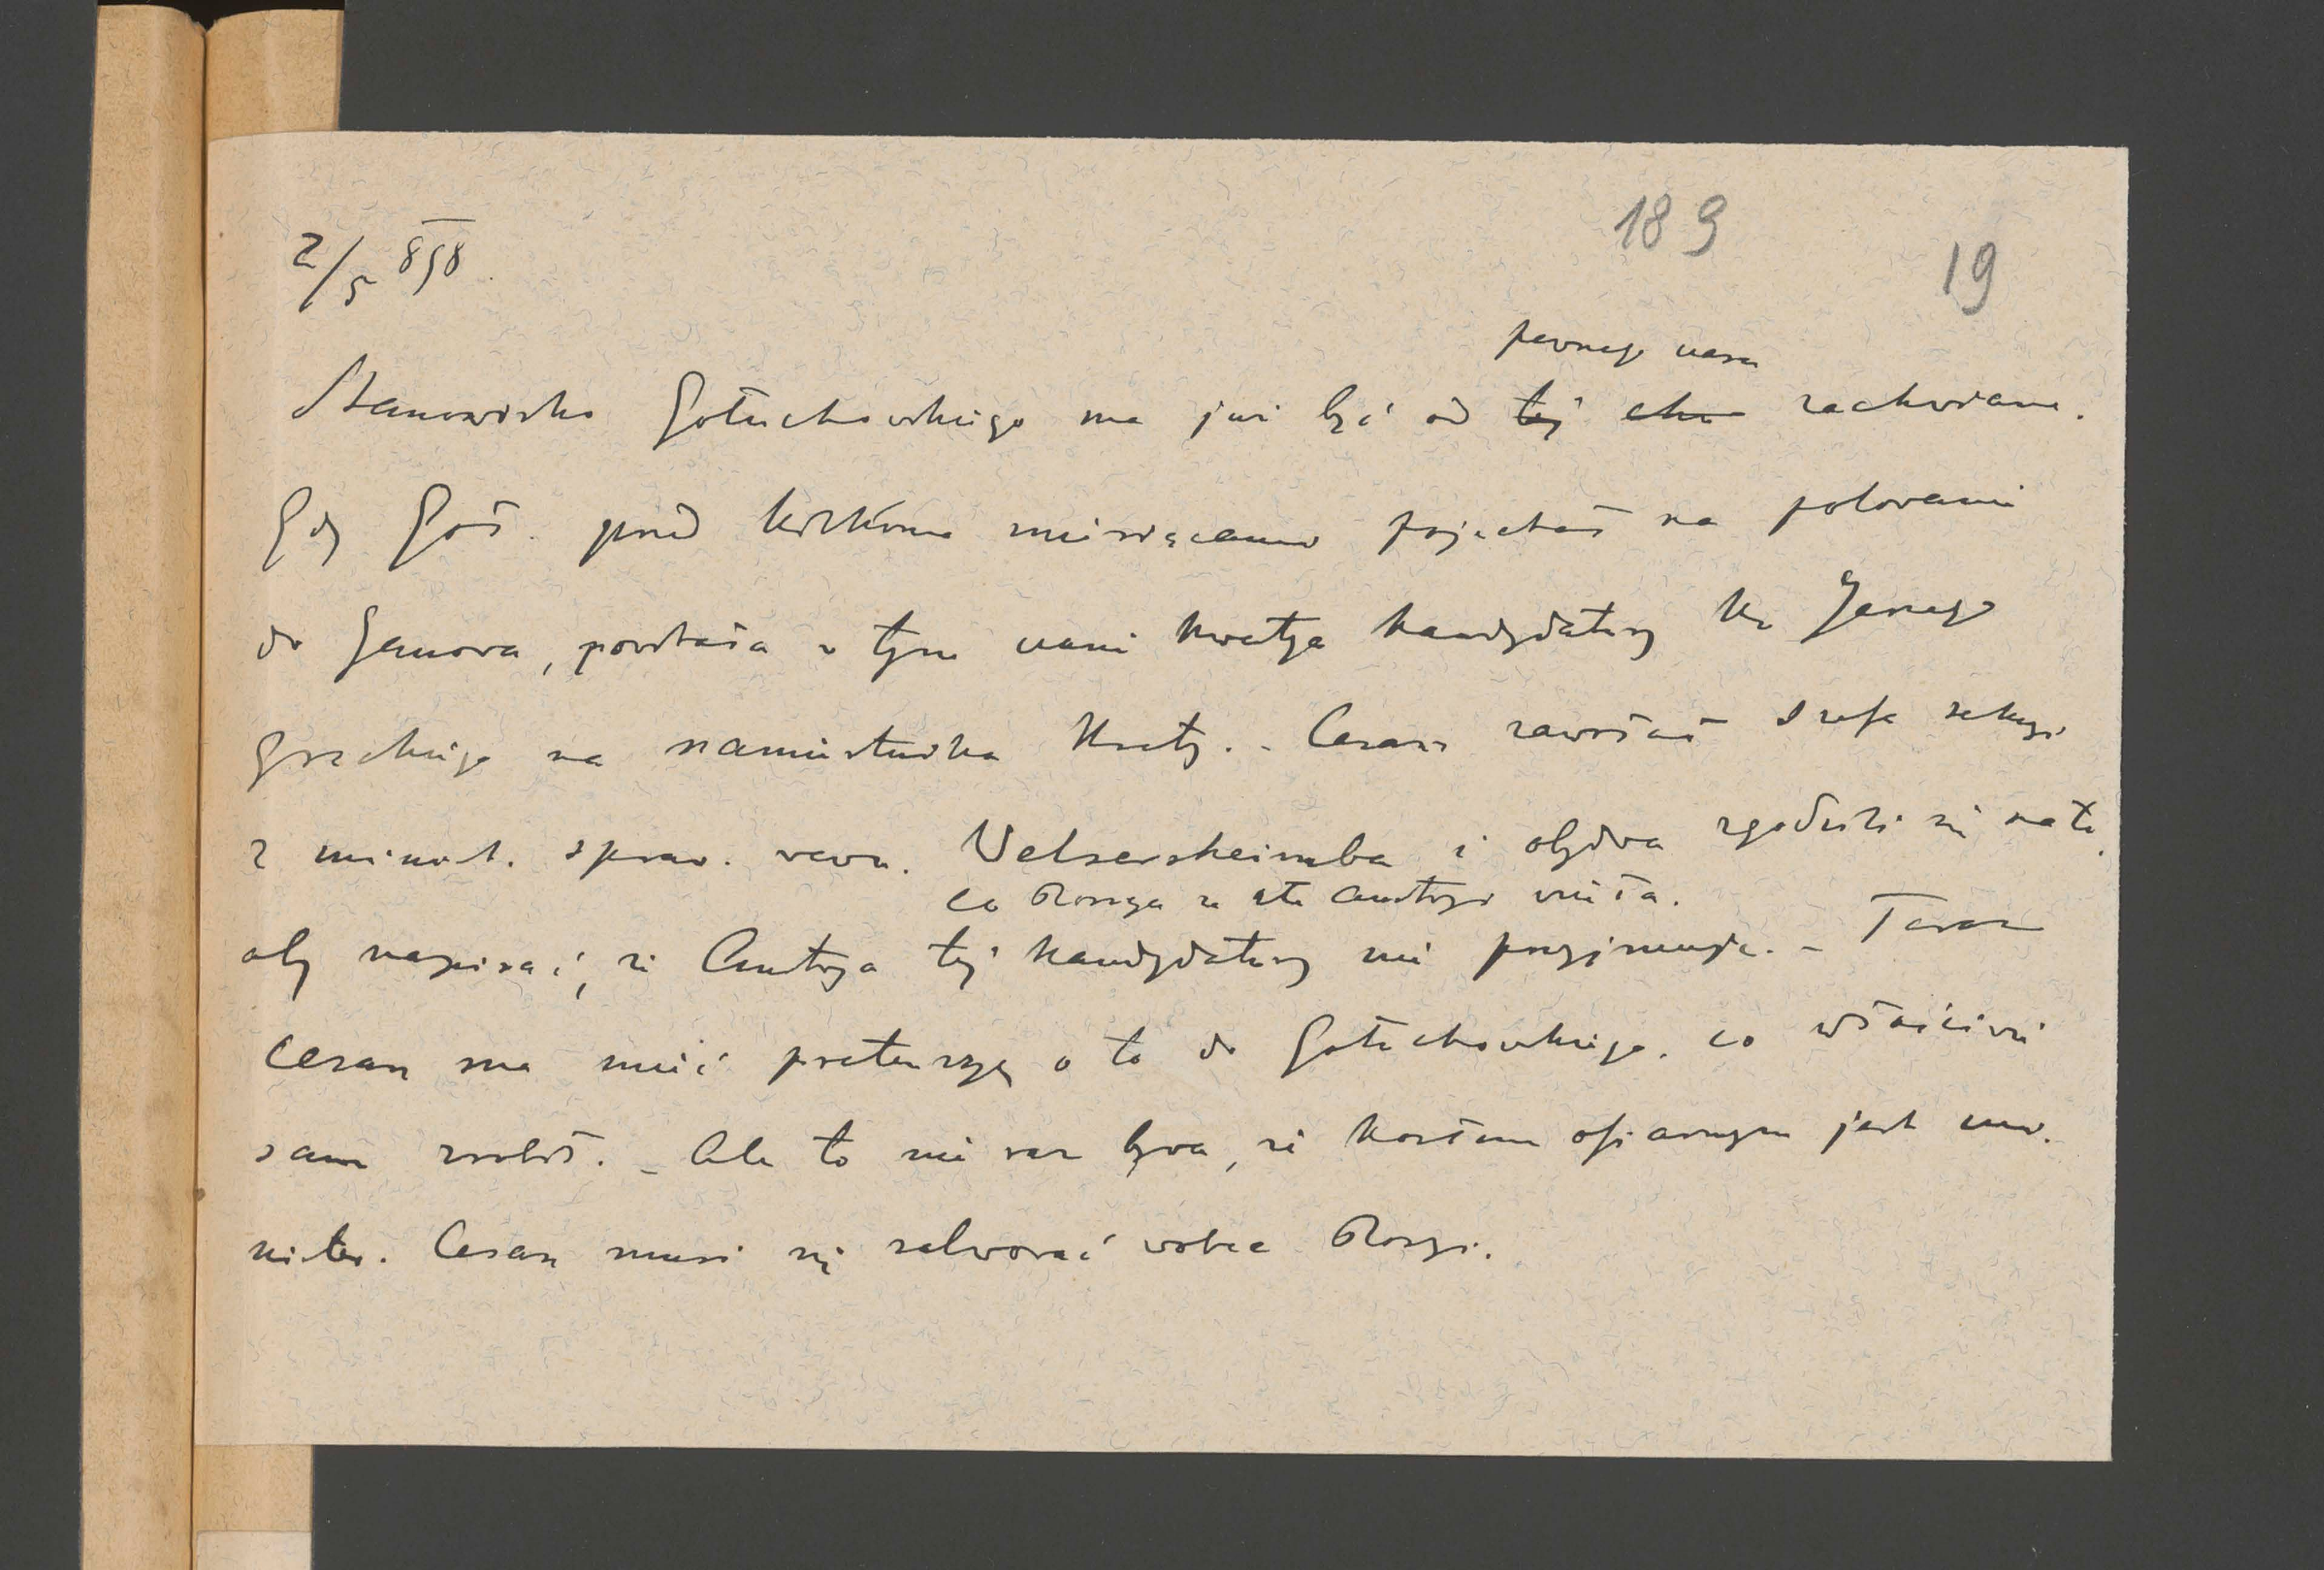 189
19
2/5 898.
pewnego czasu
Stanowisko Gołuchowskiego ma już być od tej chw zachwiane.
Gdy Goł. przed kilkoma miesiącami pojechał na polowanie
do Janowa, powstała w tym czasie kwestya kandydatury ks Jerzego
greckiego na namiestnika Krety. - Cesarz zawołał szefa sekcyi
z minist. spraw. zewn. Welsersheimba i obydwa zgodzili się na to,
co Rossya za złe Austryi wzięła.
aby napisać, że Austrya tej kandydatury nie przyjmuje. - Teraz
Cesarz ma mieć pretensyę o to do Gołuchowskiego, co właściwie
sam zrobił. - Ale to nie raz bywa, że kozłem ofiarnym jest mi-
nister. Cesarz musi się salwować wobec Rosyi.